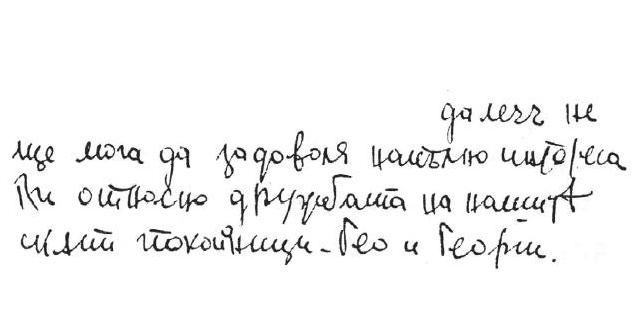 далеч не
ще мога да задоволя напълно интереса
Ви относно дружбата на нашите
покойници - Гео и Георги.